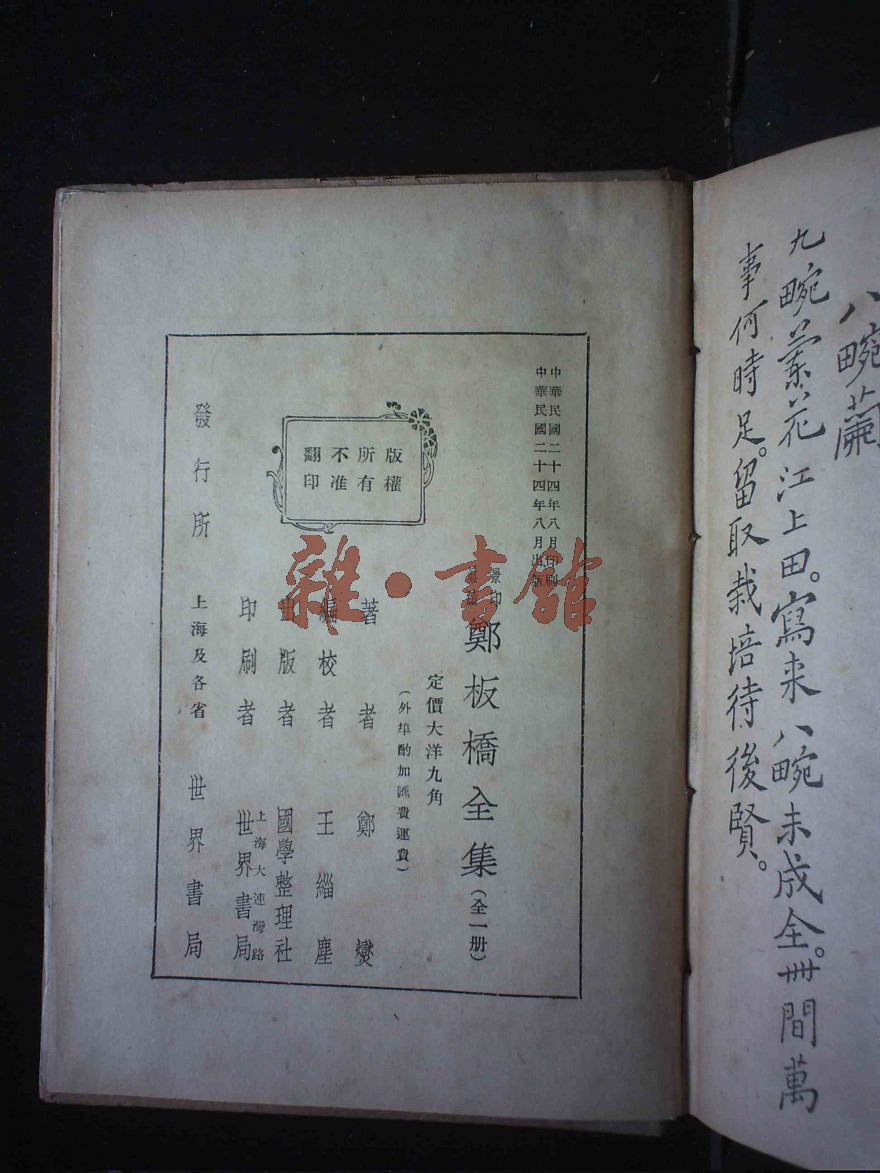 八畹蘭
九畹蘭花江上田。寫来八畹未成全。世間萬
事何時足。留取栽培待後賢。
中華民國二十四年八月印刷
中華民國二十四年八月出版
景印
鄭板橋全集(全一册)
定價大洋九角
(外埠酌加匯費運費)
版權
所有
不准
翻印
著者 鄭燮
編校者 王緇塵
出版者 國學整理社
印刷者 上海大連灣路 世界書局
發行所 上海及各省 世界書局
雜·書館